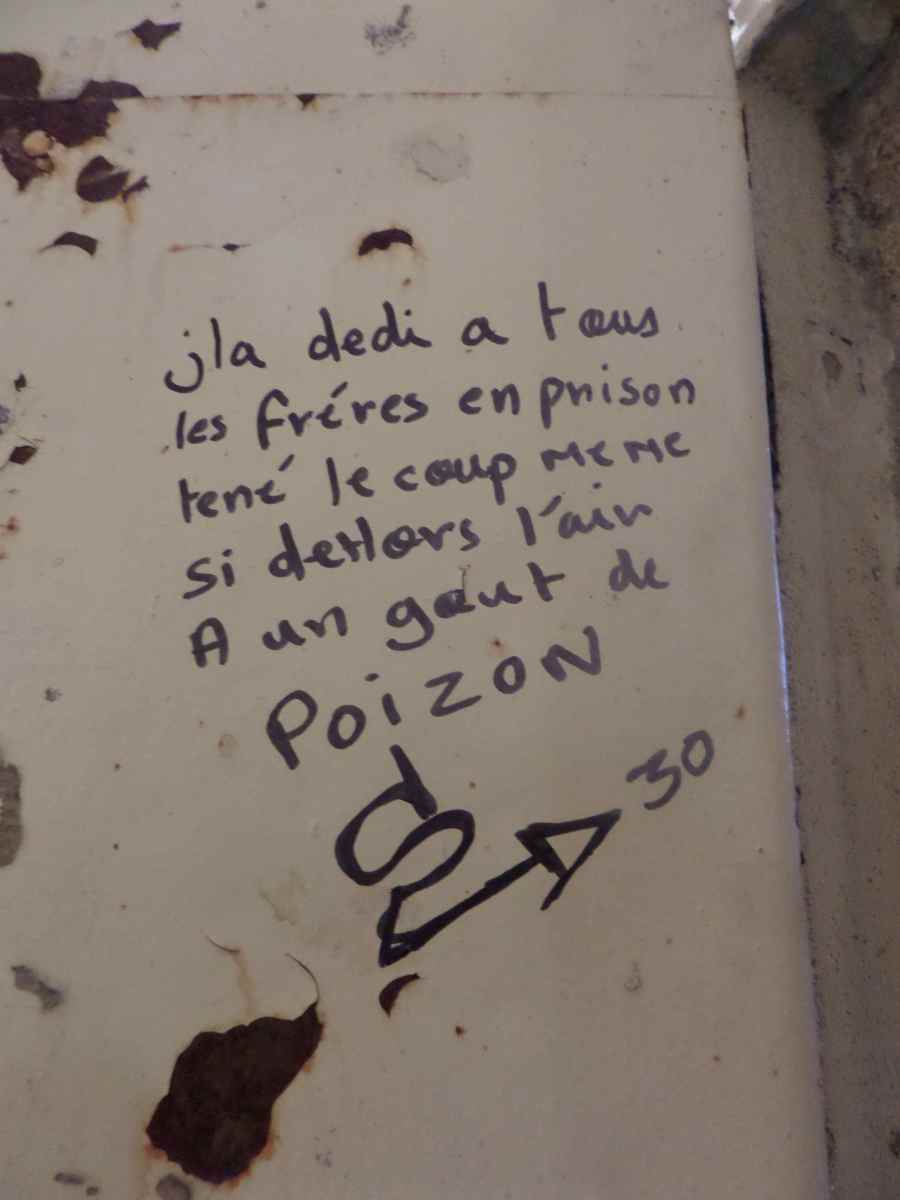 j'la dedi a tous
les fréres en prison
tené le coup MEME
si deHors l'air
A un gout de
POIZON
30